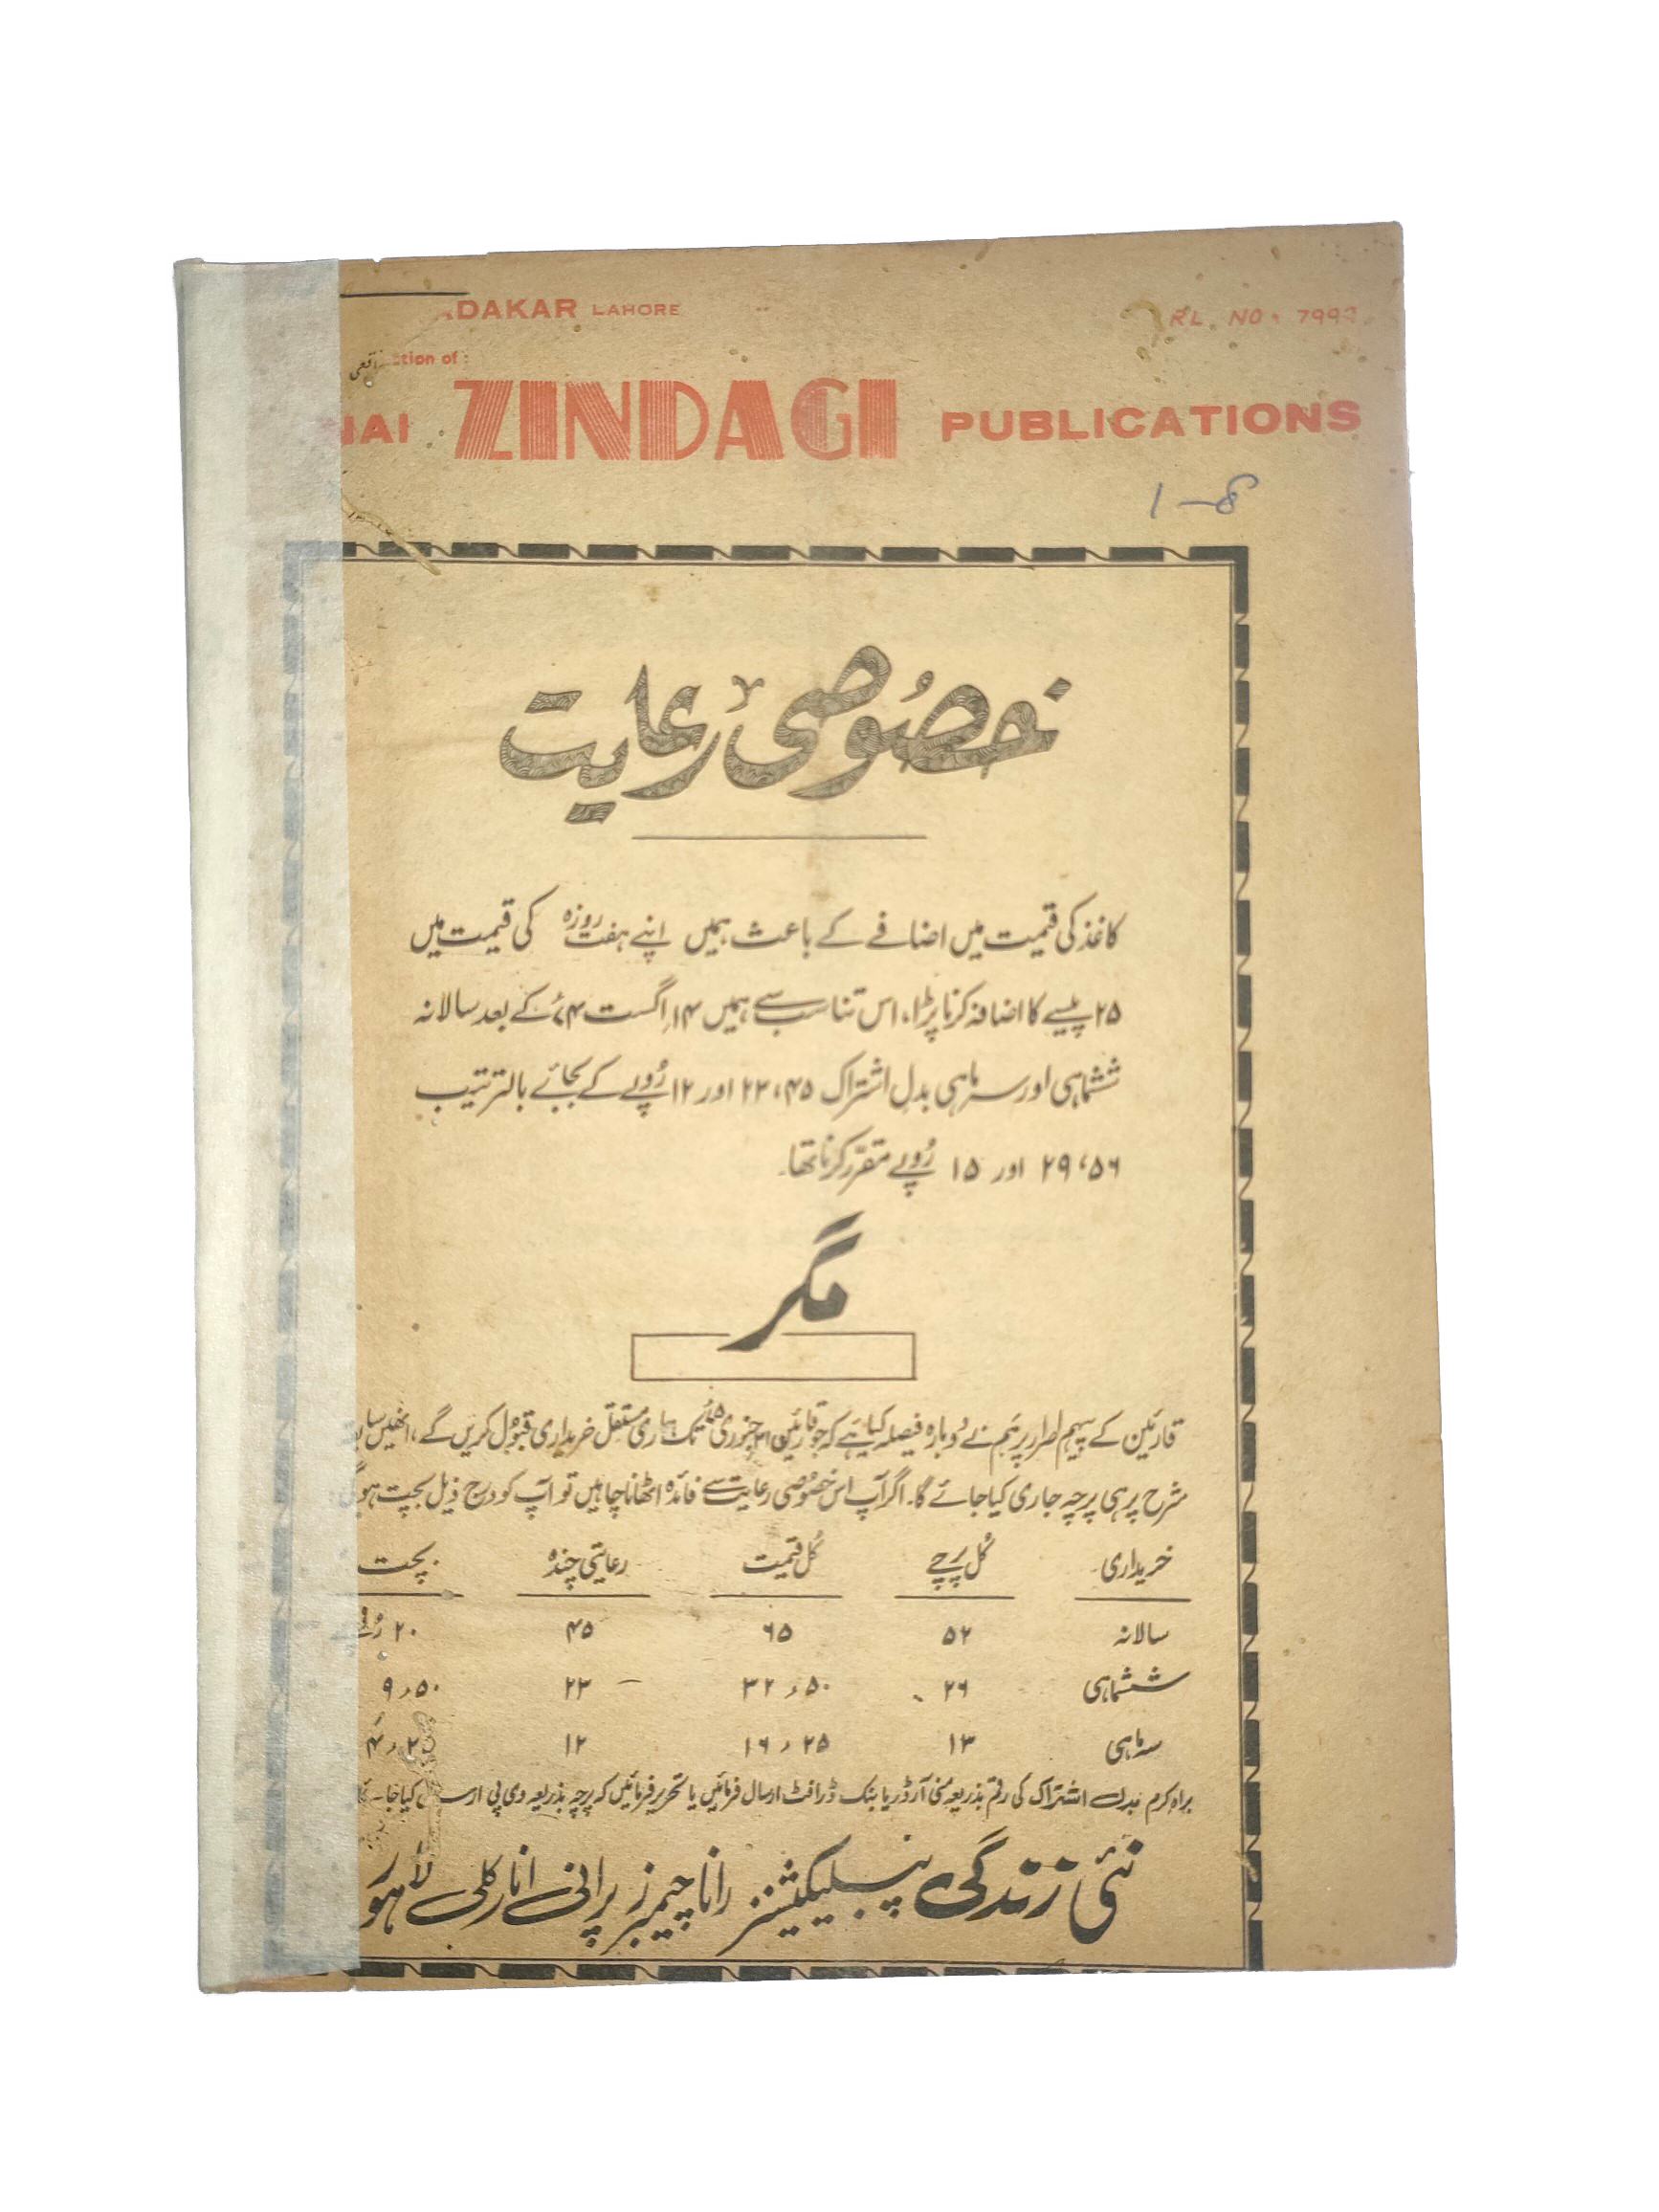 ADAKAR LAHORE
RL. NO. 7999
ction of :
NAI ZINDAGI PUBLICATIONS
1-8
خصوصی رعایت
کاغذ کی قیمت میں اضافے کے باعث ہمیں اپنے ہفت روزہ کی قیمت میں
۲۵ پیسے کا اضافہ کرنا پڑا، اس تناسب سے ہمیں ۱۴؍ اگست ۷۴ء کے بعد سالانہ
ششماہی اور سہ ماہی بدل اشتراک ۴۵، ۲۳ اور ۱۲ رُوپے کے بجائے بالترتیب
۵۶، ۲۹ اور ۱۵ رُوپے مقرّر کرنا تھا۔
مگر
قارئین کے پیہم اصرار پر ہم نے دُوبارہ فیصلہ کیا ہے کہ جو قارئین ۳۱ جنوری ۷۵ء تک ہماری مستقل خریداری قبول کریں گے، انھیں
شرح پر ہی پرچہ جاری کیا جائے گا۔ اگر آپ اس خصُوصی رعایت سے فائدہ اٹھانا چاہیں تو آپ کو درج ذیل بچت ہوگی
خریداری کُل پرچے کُل قیمت رعایتی چندہ بچت
سالانہ ۵۲ ۶۵ ۴۵ ۲۰ رُپے
ششماہی ۲۶ ۳۲٫۵۰ ۲۳ ۹٫۵۰
سہ ماہی ۱۳ ۱۶٫۲۵ ۱۲
براہِ کرم بدل اشتراک کی رقم بذریعہ منی آرڈر یا بنک ڈرافٹ ارسال فرمائیں یا تحریر فرمائیں کہ پرچہ بذریعہ وی پی ارسال کیا جائے
نئی زندگی پبلیکیشنز رانا چیمبرز پرانی انارکلی لاہور